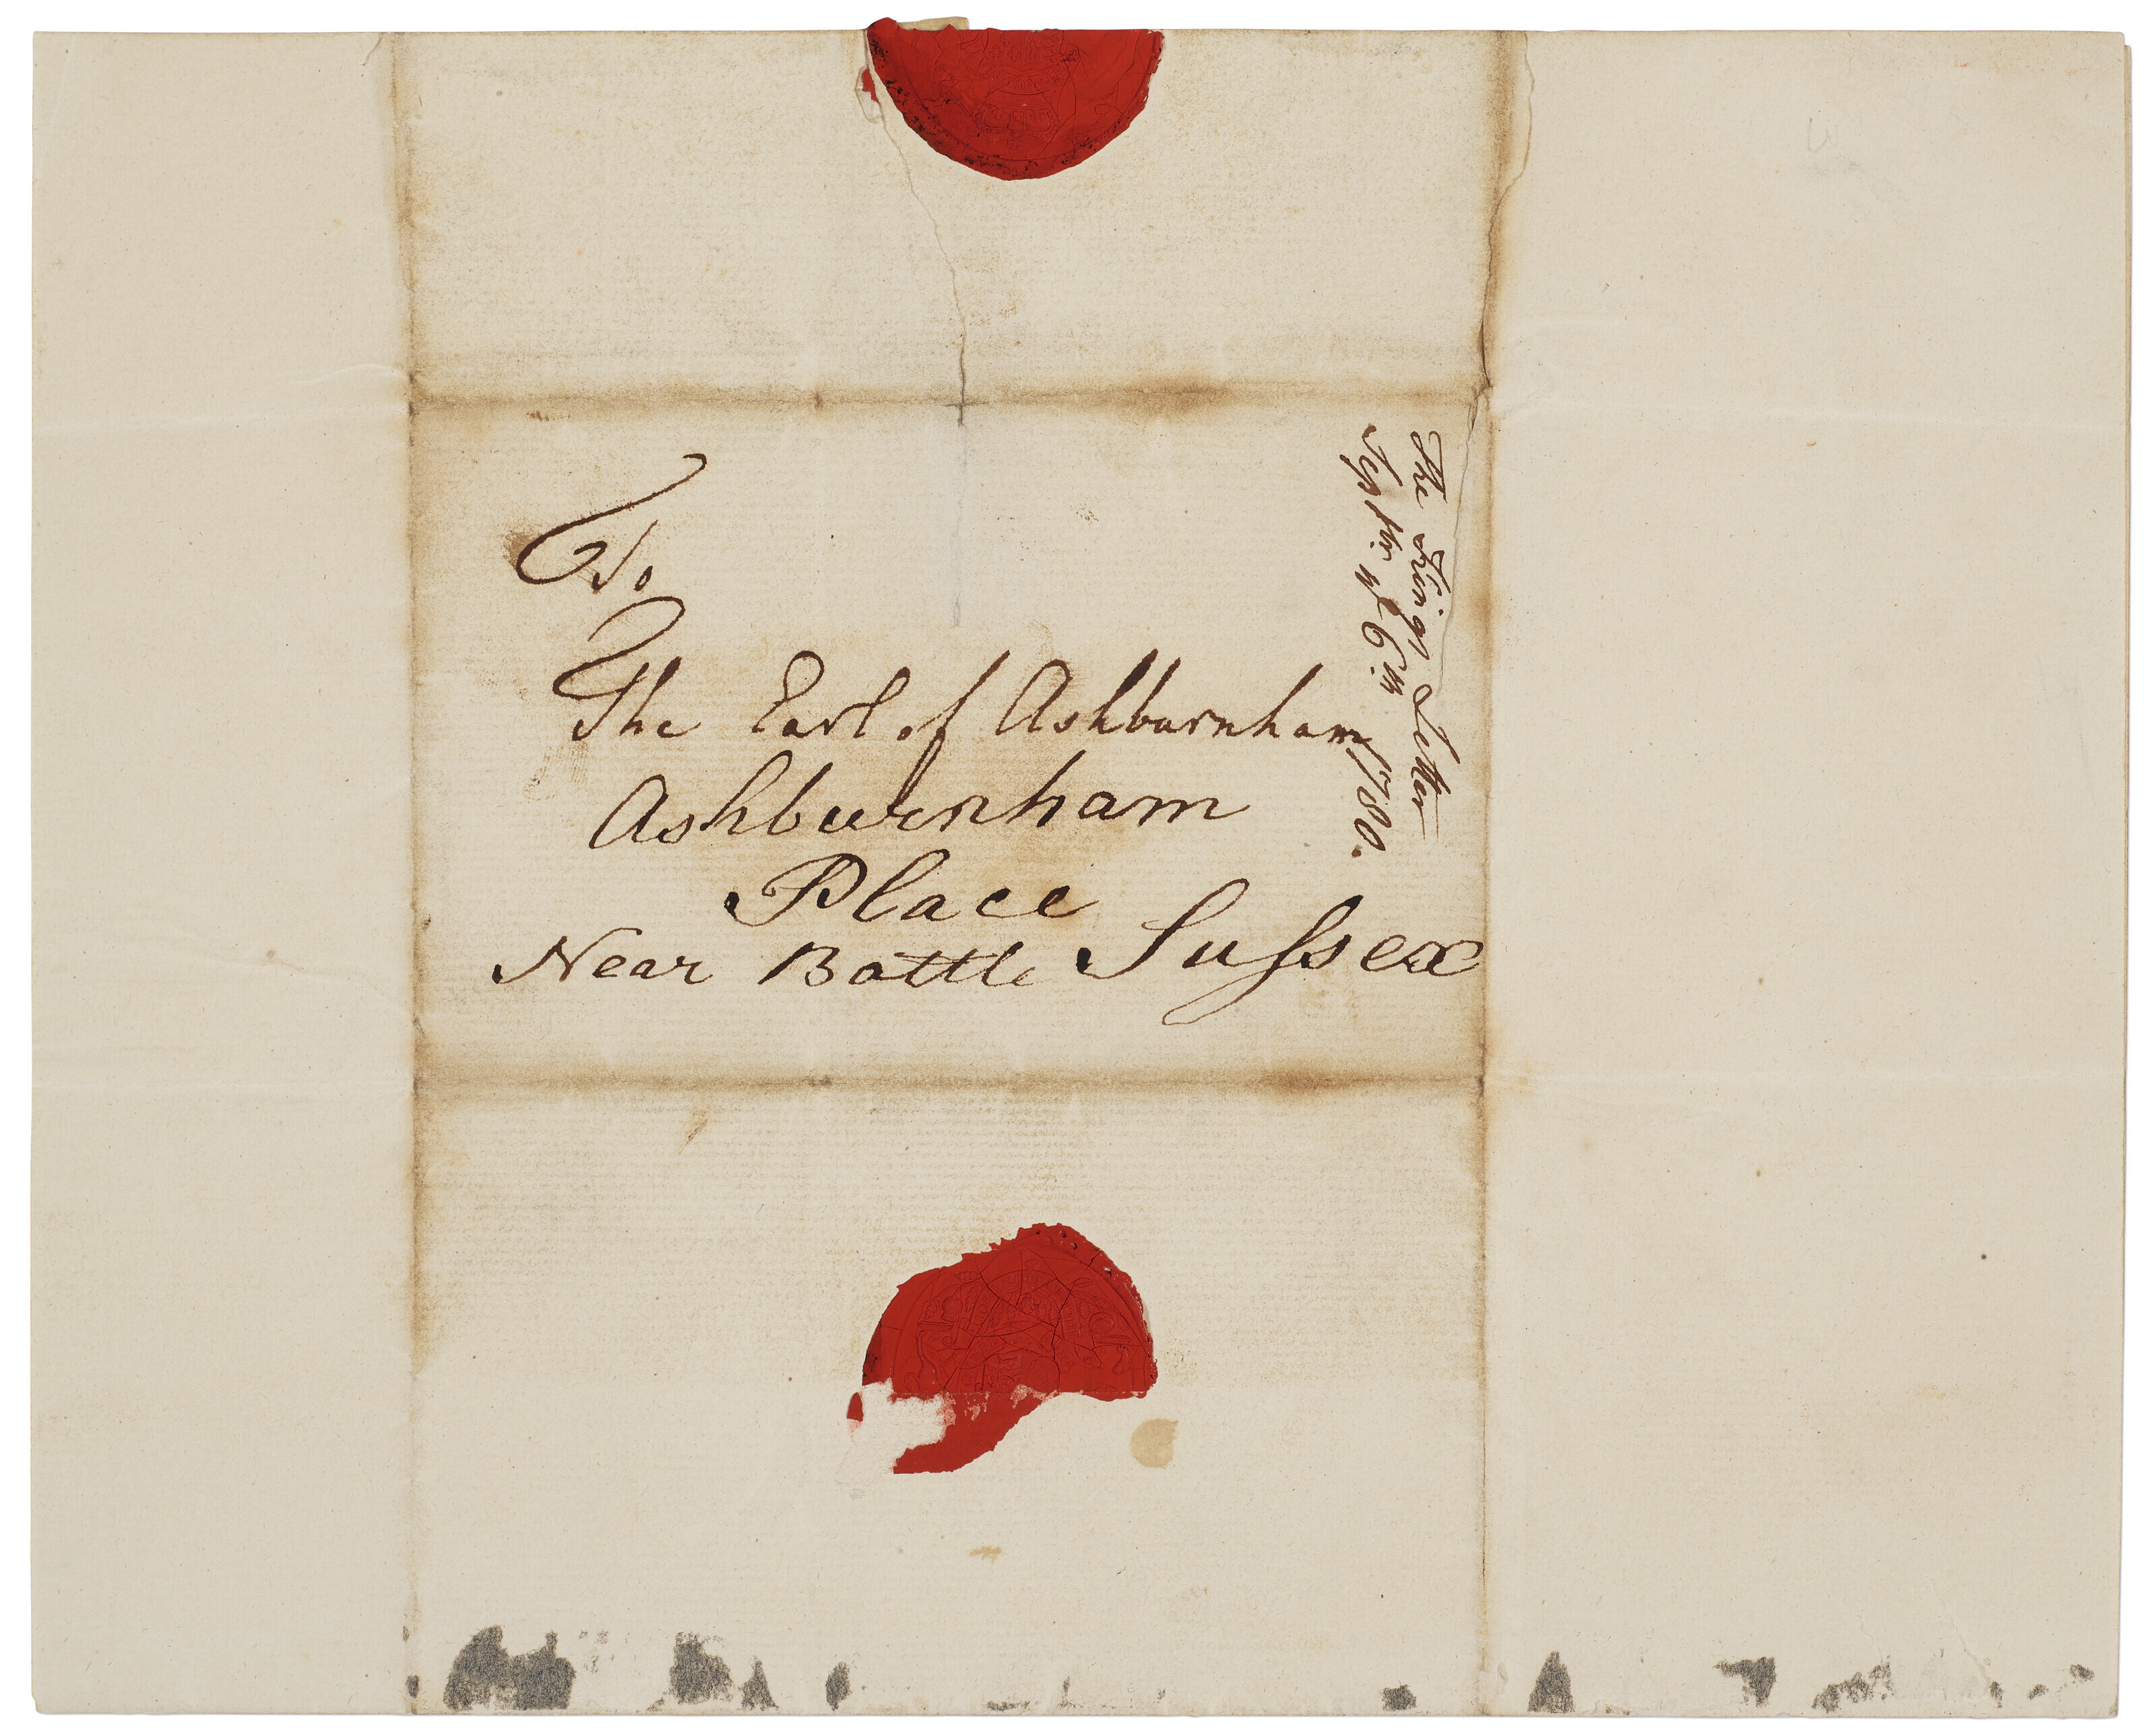 To
The Earl of Ashburnham
Ashburnham
Place
Near Battle Sussex
The Kings Letter
Septbr. ye 6th. 1780.